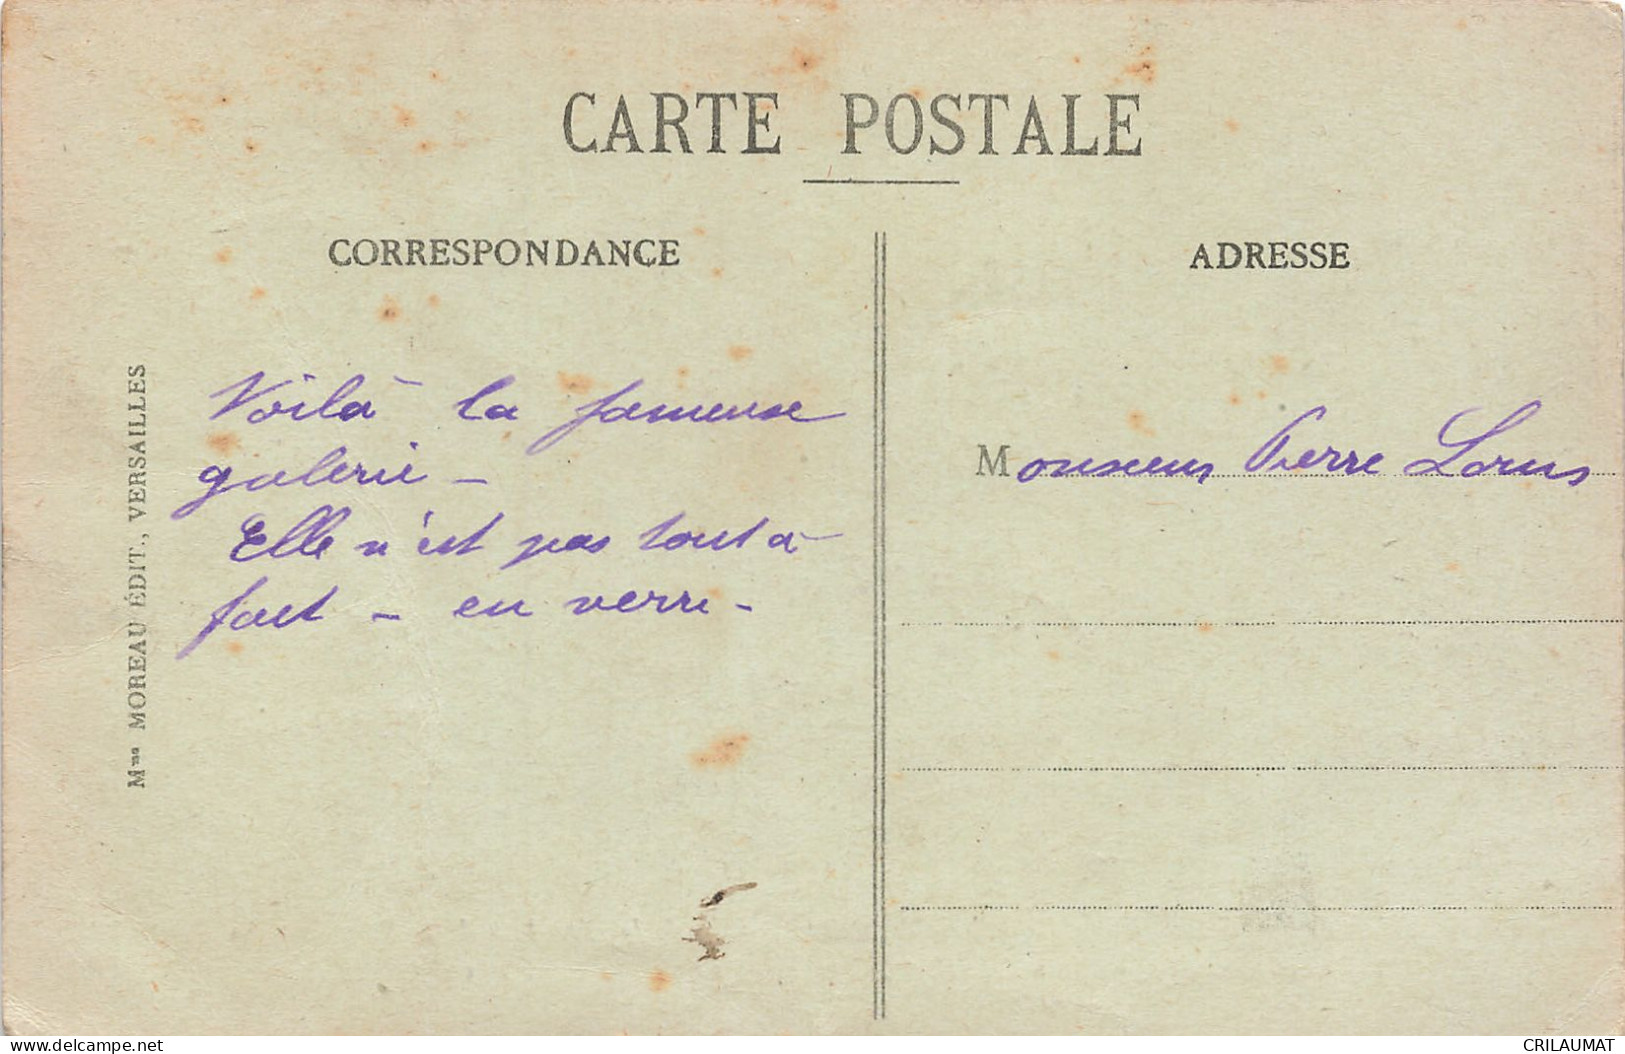 CARTE POSTALE
CORRESPONDANCE
ADRESSE
Mme MOREAU ÉDIT., VERSAILLES
Voilà la fameuse
galerie –
Elle n'est pas tout à
fait – en verre –
Monsieur Pierre Lorus
CRILAUMAT